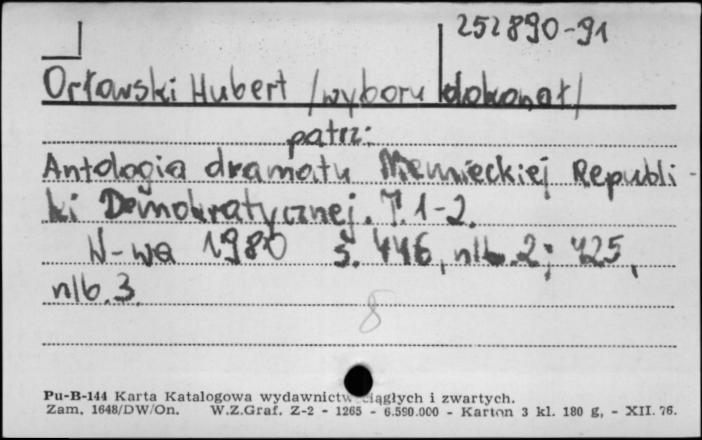 252890-91
Orłowski Hubert /wyboru dokonał/
patrz:
Antologia dramatu Niemieckiej Republi-
ki Demokratycznej. T. 1-2.
W-wa 1980 s. 446, nlb. 2; 425,
nlb. 3
8
Pu-B-144 Karta Katalogowa wydawnictw ciągłych i zwartych.
Zam. 1648/DW/On. W.Z.Graf. Z-2 - 1265 - 6.590.000 - Karton 3 kl. 180 g, - XII. 76.